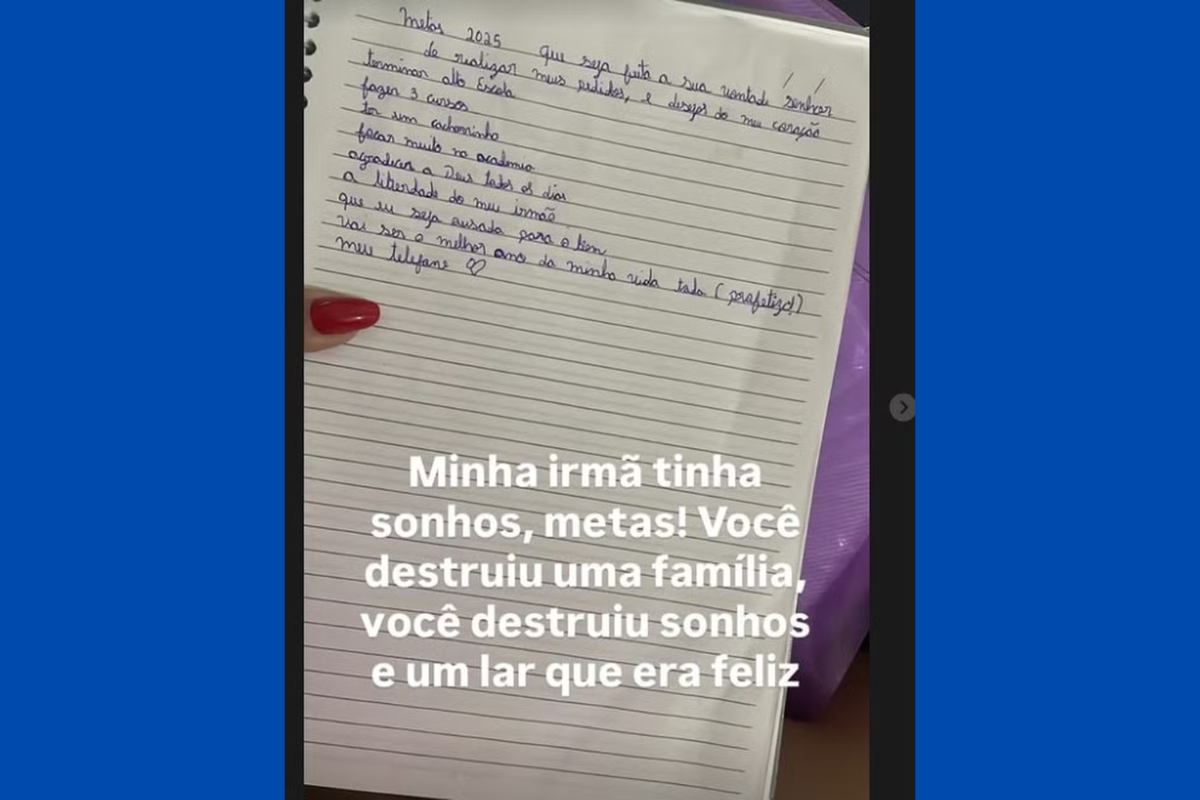 Metas 2025 que seja feita a sua vontade senhor
de realizar meus pedidos, e desejos do meu coração
terminar alto Escola
fazer 3 cursos
ter um cachorrinho
focar muito na academia
agradecer a Deus todos os dias
a liberdade do meu irmão
que eu seja ousada para o bem
vai ser o melhor ano da minha vida toda (profetizo!)
meu telefone
Minha irmã tinha
sonhos, metas! Você
destruiu uma família,
você destruiu sonhos
e um lar que era feliz